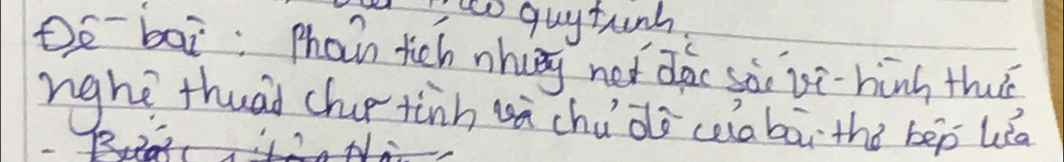 quy trình.
Đề bài: Phân tích những nét đặc sắc về hình thức
nghệ thuật chữ tình và chủ đề của bài thơ bếp lửa
- Bước